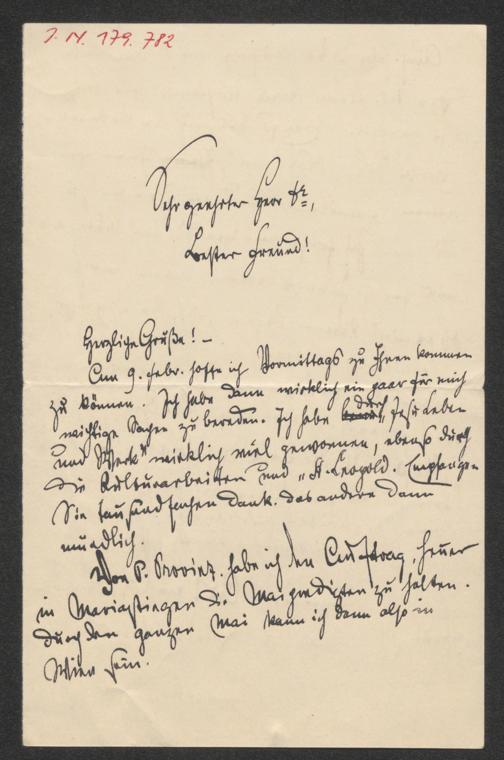 J. N. 179.782
Sehr geehrter Herr Dr.,
Bester Freund!
Herzliche Grüße! –
Am 9. Febr. hoffe ich Vormittags zu Ihnen kommen
zu können. Ich habe dann wirklich ein paar für mich
wichtige Sachen zu bereden. Ich habe durch „Jesu Leben
und Werk" wirklich viel gewonnen, ebenso durch
die Kulturarbeiten und „St. Leopold. Empfangen
Sie tausendfachen Dank. Das andere dann
mündlich.
Von P. Provinz. habe ich den Auftrag, heuer
in Mariastiegen die Maipredigten zu halten.
Durch den ganzen Mai kann ich dann also in
Wien sein.